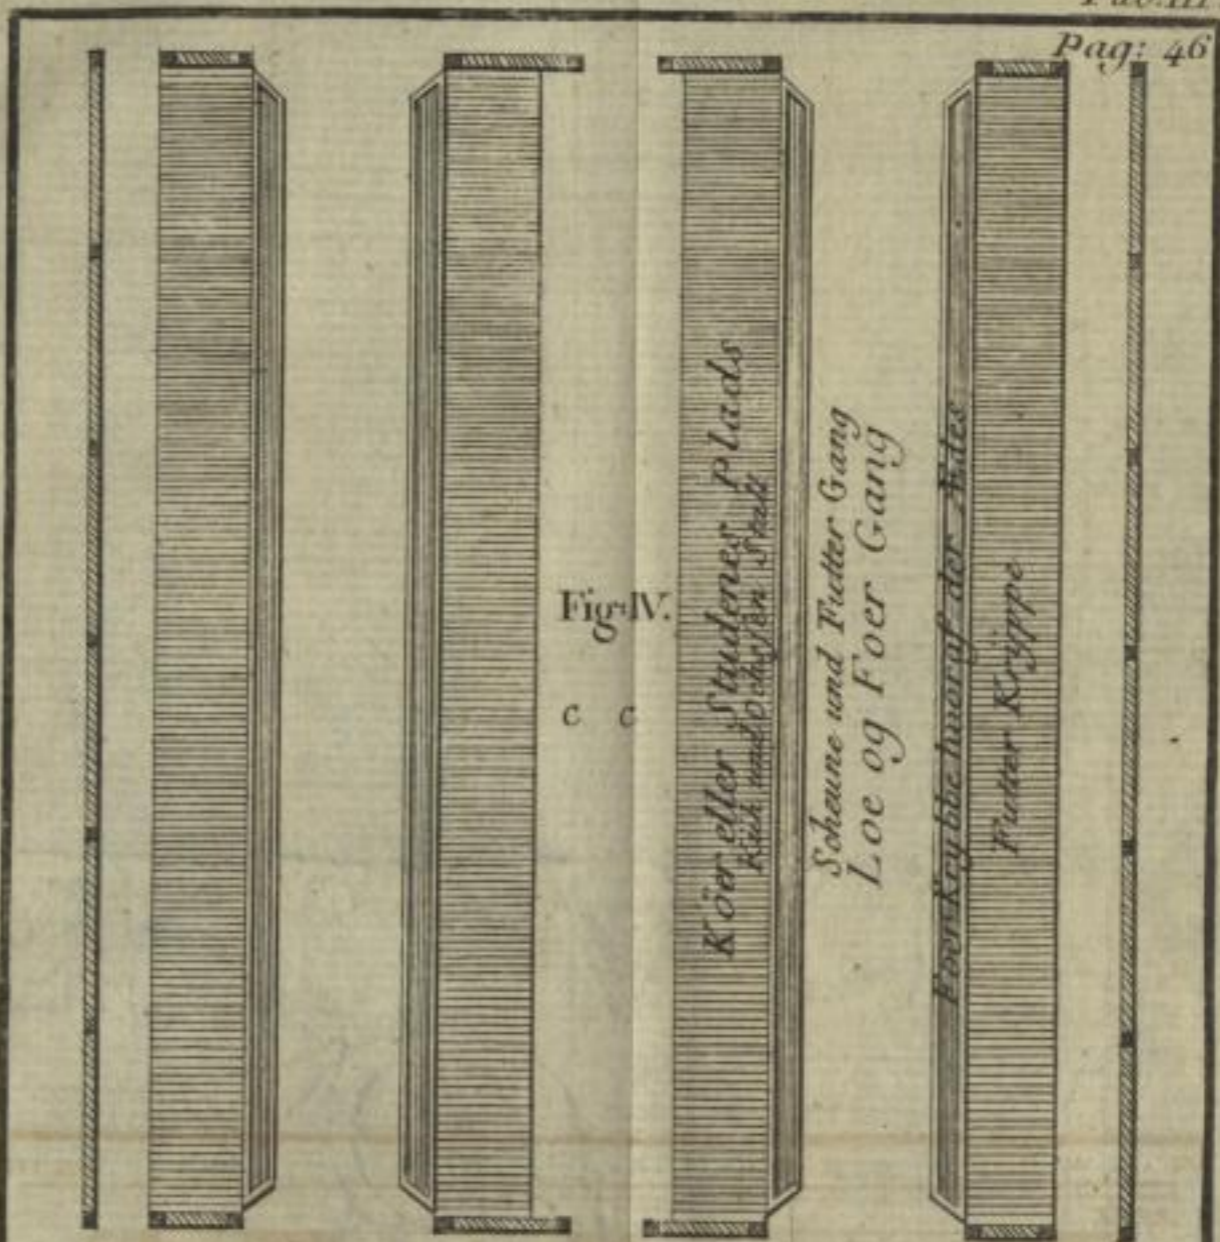 Pag: 46
Fig: IV.
c c
Köer eller Studenes Plads
Küh und Ochsen Stall
Scheune und Futter Gang
Loe og Foer Gang
Foer Krybbe hvoraf der Ædes
Futter Kryppe